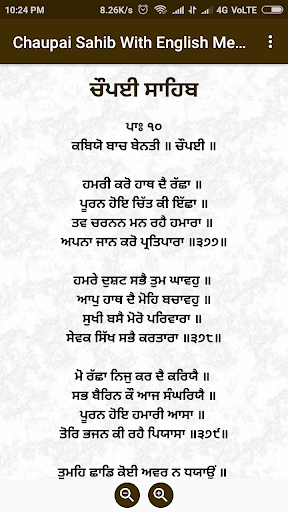 10:24 PM 8.26K/s 4G VoLTE
Chaupai Sahib With English Me...
ਚੌਪਈ ਸਾਹਿਬ
ਪਾਃ ੧੦
ਕਬਿਯੋ ਬਾਚ ਬੇਨਤੀ ॥ ਚੌਪਈ ॥
ਹਮਰੀ ਕਰੋ ਹਾਥ ਦੈ ਰੱਛਾ ॥
ਪੂਰਨ ਹੋਇ ਚਿੱਤ ਕੀ ਇੱਛਾ ॥
ਤਵ ਚਰਨਨ ਮਨ ਰਹੈ ਹਮਾਰਾ ॥
ਅਪਨਾ ਜਾਨ ਕਰੋ ਪ੍ਰਤਿਪਾਰਾ ॥੩੭੭॥
ਹਮਰੇ ਦੁਸ਼ਟ ਸਭੈ ਤੁਮ ਘਾਵਹੁ ॥
ਆਪੁ ਹਾਥ ਦੈ ਮੋਹਿ ਬਚਾਵਹੁ ॥
ਸੁਖੀ ਬਸੈ ਮੋਰੋ ਪਰਿਵਾਰਾ ॥
ਸੇਵਕ ਸਿੱਖ ਸਭੈ ਕਰਤਾਰਾ ॥੩੭੮॥
ਮੋ ਰੱਛਾ ਨਿਜੁ ਕਰ ਦੈ ਕਰਿਯੈ ॥
ਸਭ ਬੈਰਿਨ ਕੌ ਆਜ ਸੰਘਰਿਯੈ ॥
ਪੂਰਨ ਹੋਇ ਹਮਾਰੀ ਆਸਾ ॥
ਤੋਰਿ ਭਜਨ ਕੀ ਰਹੈ ਪਿਯਾਸਾ ॥੩੭੯॥
ਤੁਮਹਿ ਛਾਡਿ ਕੋਈ ਅਵਰ ਨ ਧਯਾਊਂ ॥